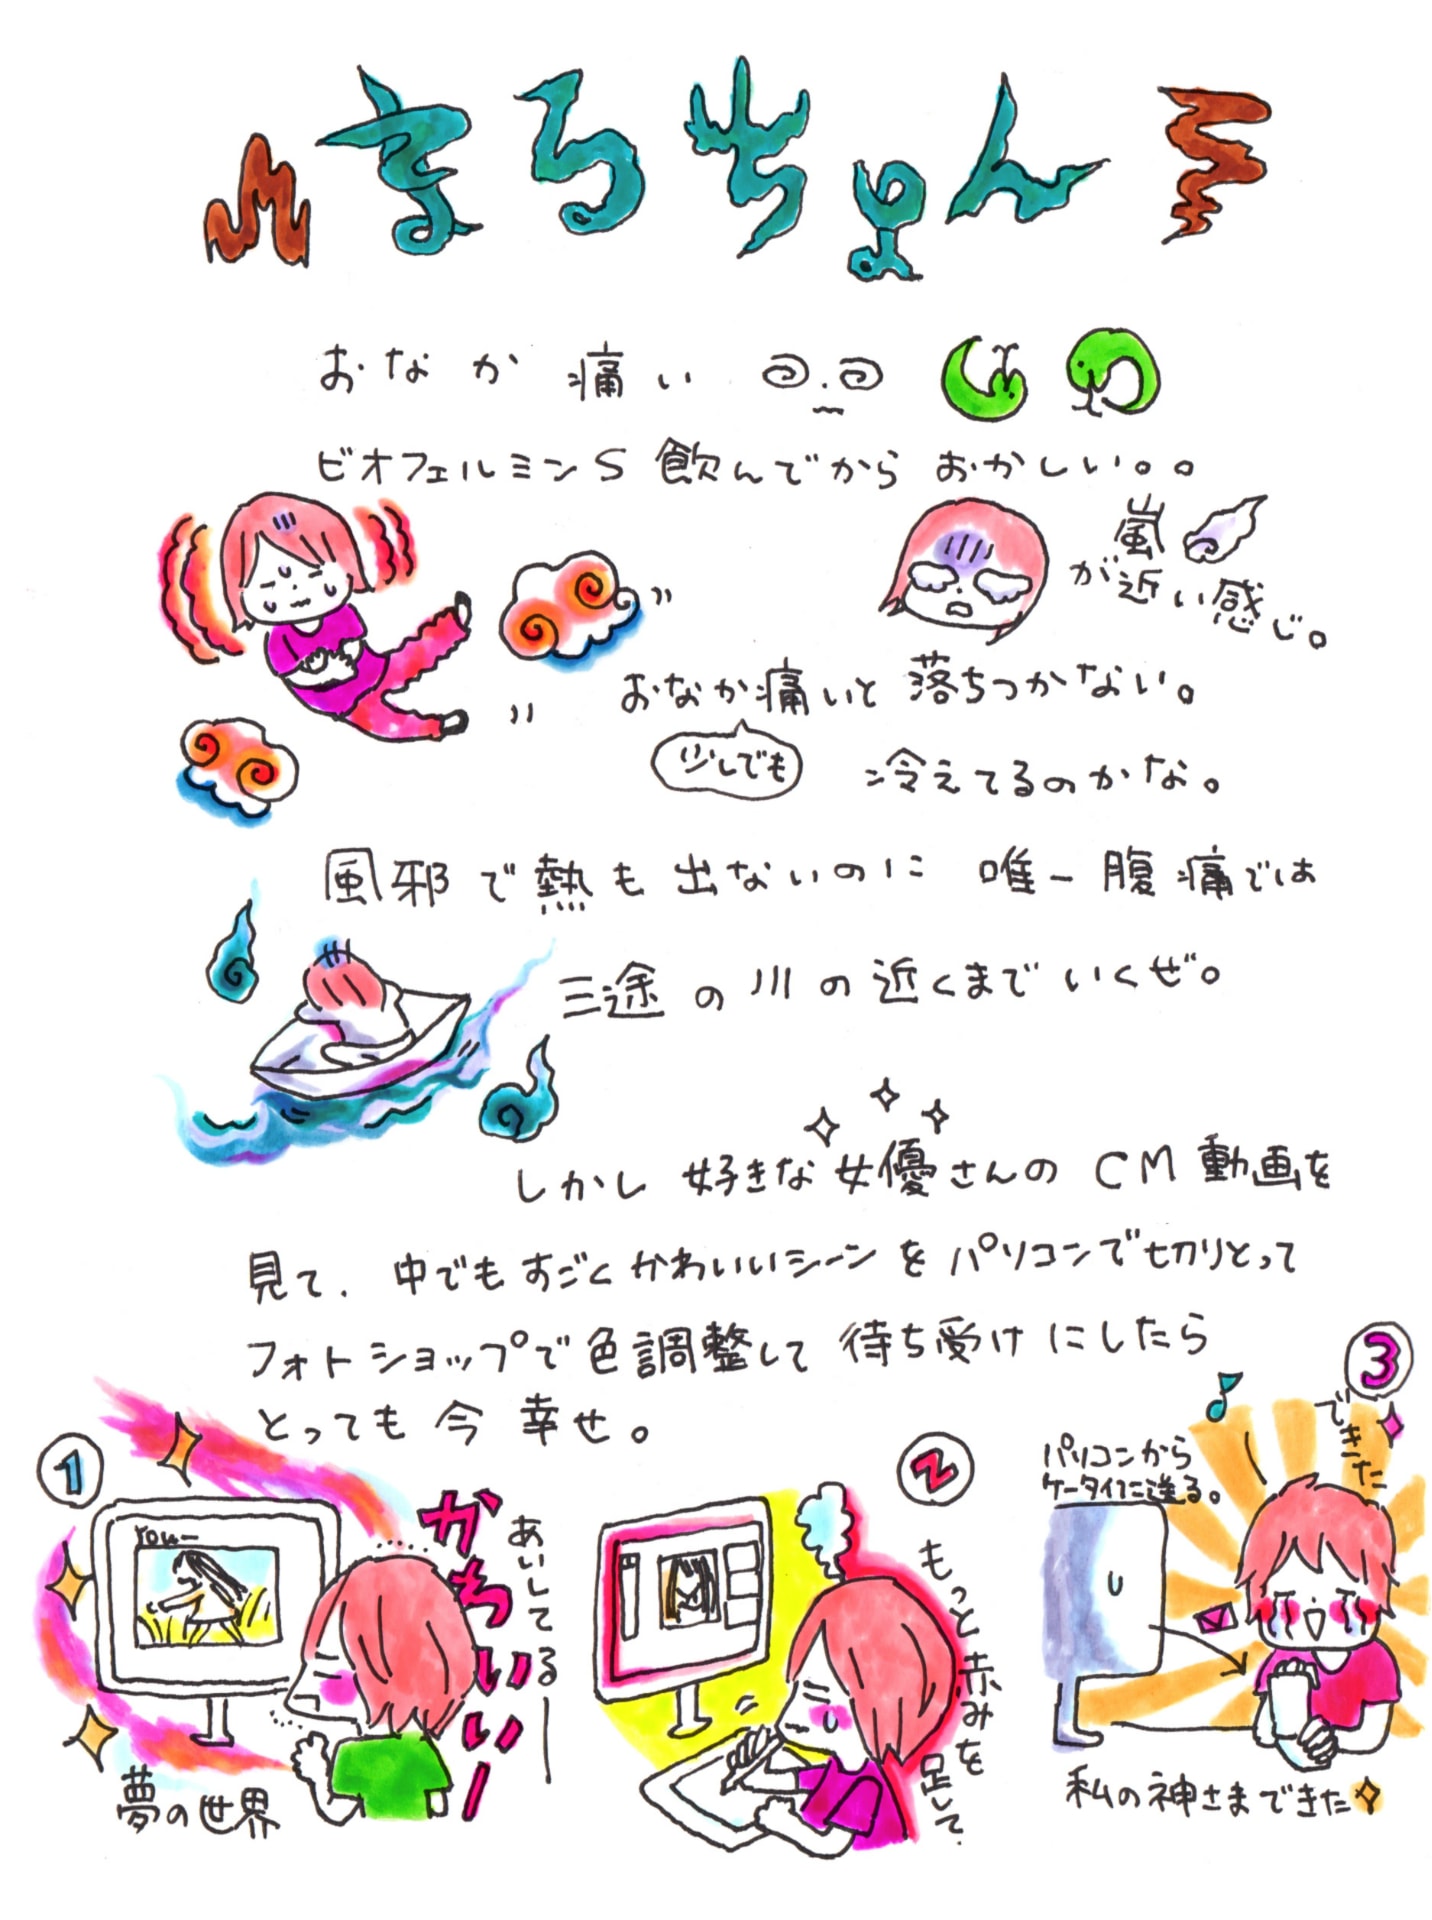 まろちょん
おなか痛い
ビオフェルミンS 飲んでから おかしい。。
嵐
が近い感じ。
おなか痛いと 落ちつかない。
少しでも
冷えてるのかな。
風邪で熱も出ないのに 唯一腹痛では
三途の川の近くまでいくぜ。
しかし 好きな女優さんの CM動画を
見て、中でもすごくかわいいシーンをパソコンで切りとって
フォトショップで色調整して 待ち受けにしたら
とっても 今 幸せ。
1
You
かわいいー
あいしてるー
夢の世界
2
もっと赤みを足して、
3
できた
パソコンから
ケータイに送る。
私の神さまできた